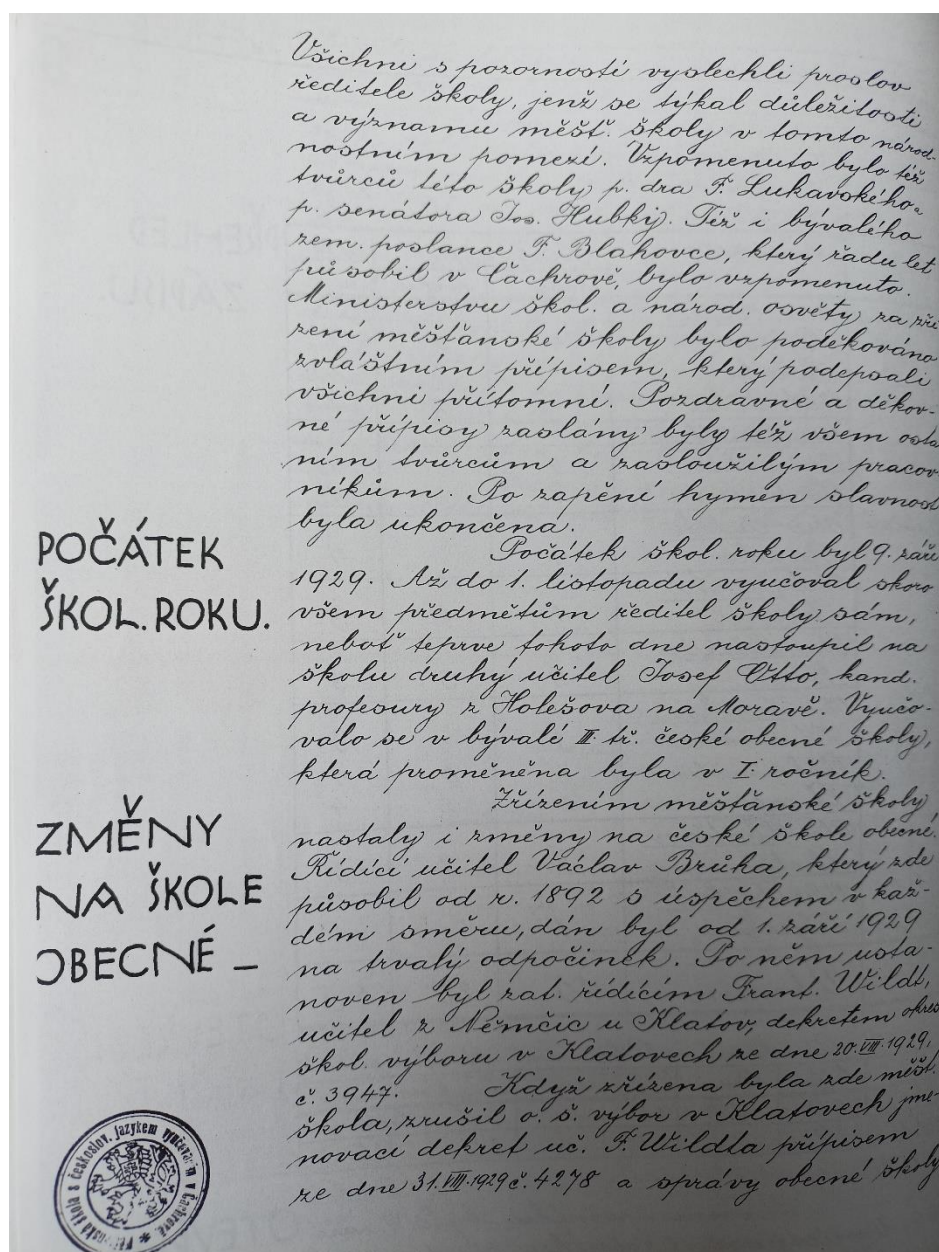 Všichni s pozorností vyslechli proslov
ředitele školy, jenž se týkal důležitosti
a významu měšť. školy v tomto národ-
nostním pomezí. Vzpomenuto bylo též
tvůrců této školy p. dra F. Lukavského a
p. senátora Jos. Hubky. Též i bývalého
zem. poslance F. Blahovce, který řadu let
působil v Čachrově, bylo vzpomenuto.
Ministerstvu škol. a národ. osvěty za zří
zení měšťanské školy bylo poděkováno
zvláštním přípisem, který podepsali
všichni přítomní. Pozdravné a děkov-
né přípisy zaslány byly též všem osta
ním tvůrcům a zasloužilým pracov-
níkům. Po zapění hymen slavnost
byla ukončena.
POČÁTEK
ŠKOL. ROKU.
Počátek škol. roku byl 9. září
1929. Až do 1. listopadu vyučoval skoro
všem předmětům ředitel školy sám,
neboť teprve tohoto dne nastoupil na
školu druhý učitel Josef Otto, kand.
profesury z Holešova na Moravě. Vyučo-
valo se v bývalé II. tř. české obecné školy,
která proměněna byla v I. ročník.
ZMĚNY
NA ŠKOLE
OBECNÉ –
Zřízením měšťanské školy
nastaly i změny na české škole obecné.
Řídící učitel Václav Brůha, který zde
působil od r. 1892 s úspěchem v kaž-
dém směru, dán byl od 1. září 1929
na trvalý odpočinek. Po něm usta-
noven byl zat. řídícím Frant. Wildt,
učitel z Němčic u Klatov, dekretem okres
škol. výboru v Klatovech ze dne 20. VIII. 1929,
č. 3947. Když zřízena byla zde měšť.
škola, zrušil o. š. výbor v Klatovech jme-
novací dekret uč. F. Wildta přípisem
ze dne 31. VIII. 1929 č. 4278 a správy obecné školy
škola s českoslov. jazykem vyučovacím v Čachrově